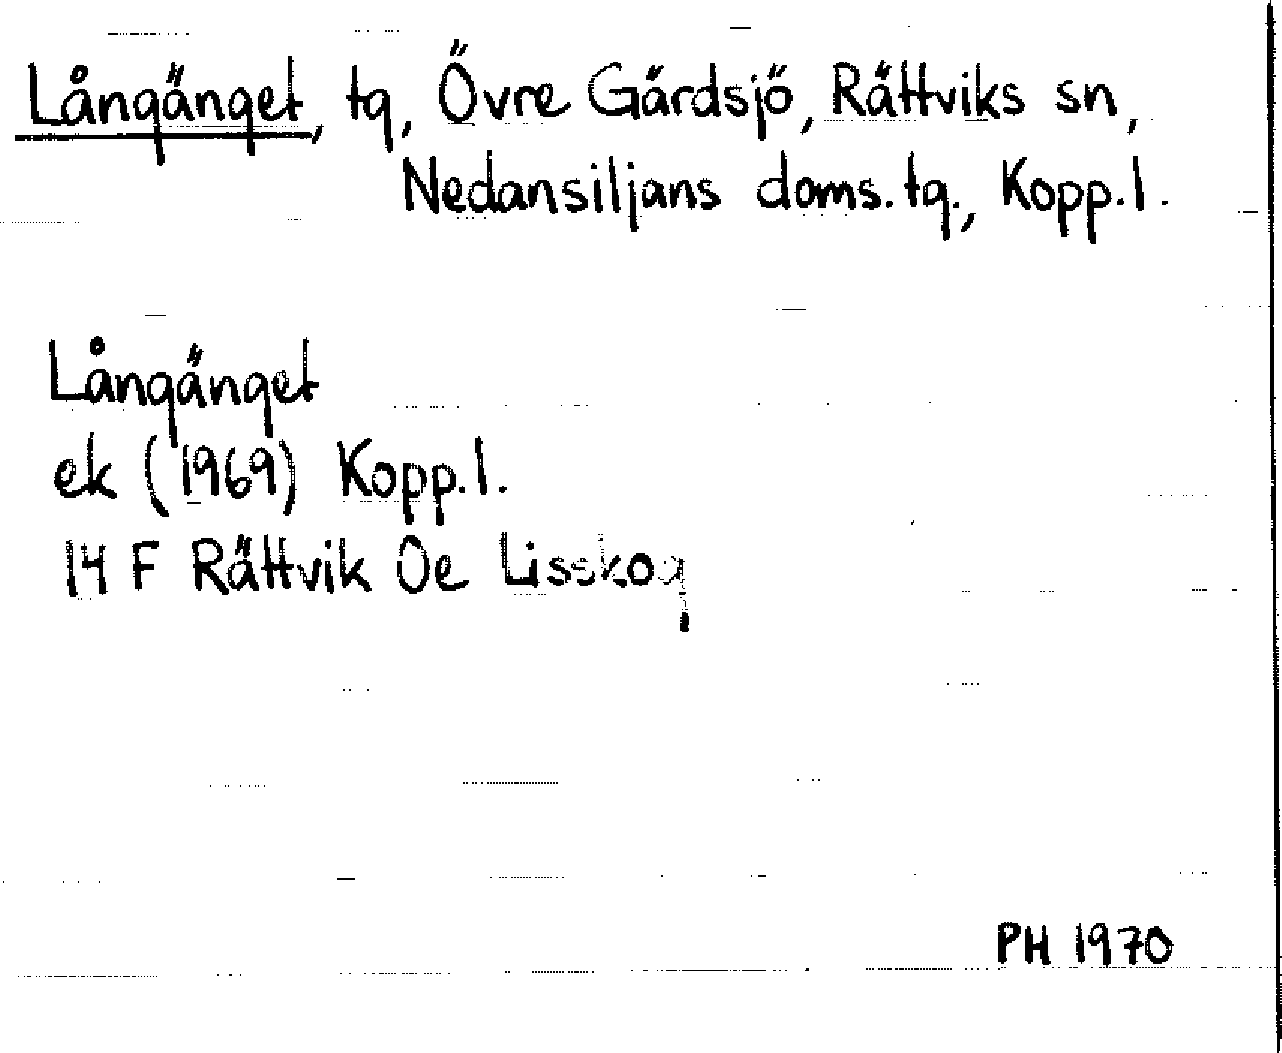 Långänget, tg, Övre Gärdsjö, Rättviks sn,
Nedansiljans doms.tg., Kopp.l.
Långänget
ek (1969) Kopp.l.
14 F Rättvik Oe Lisskog
PH 1970